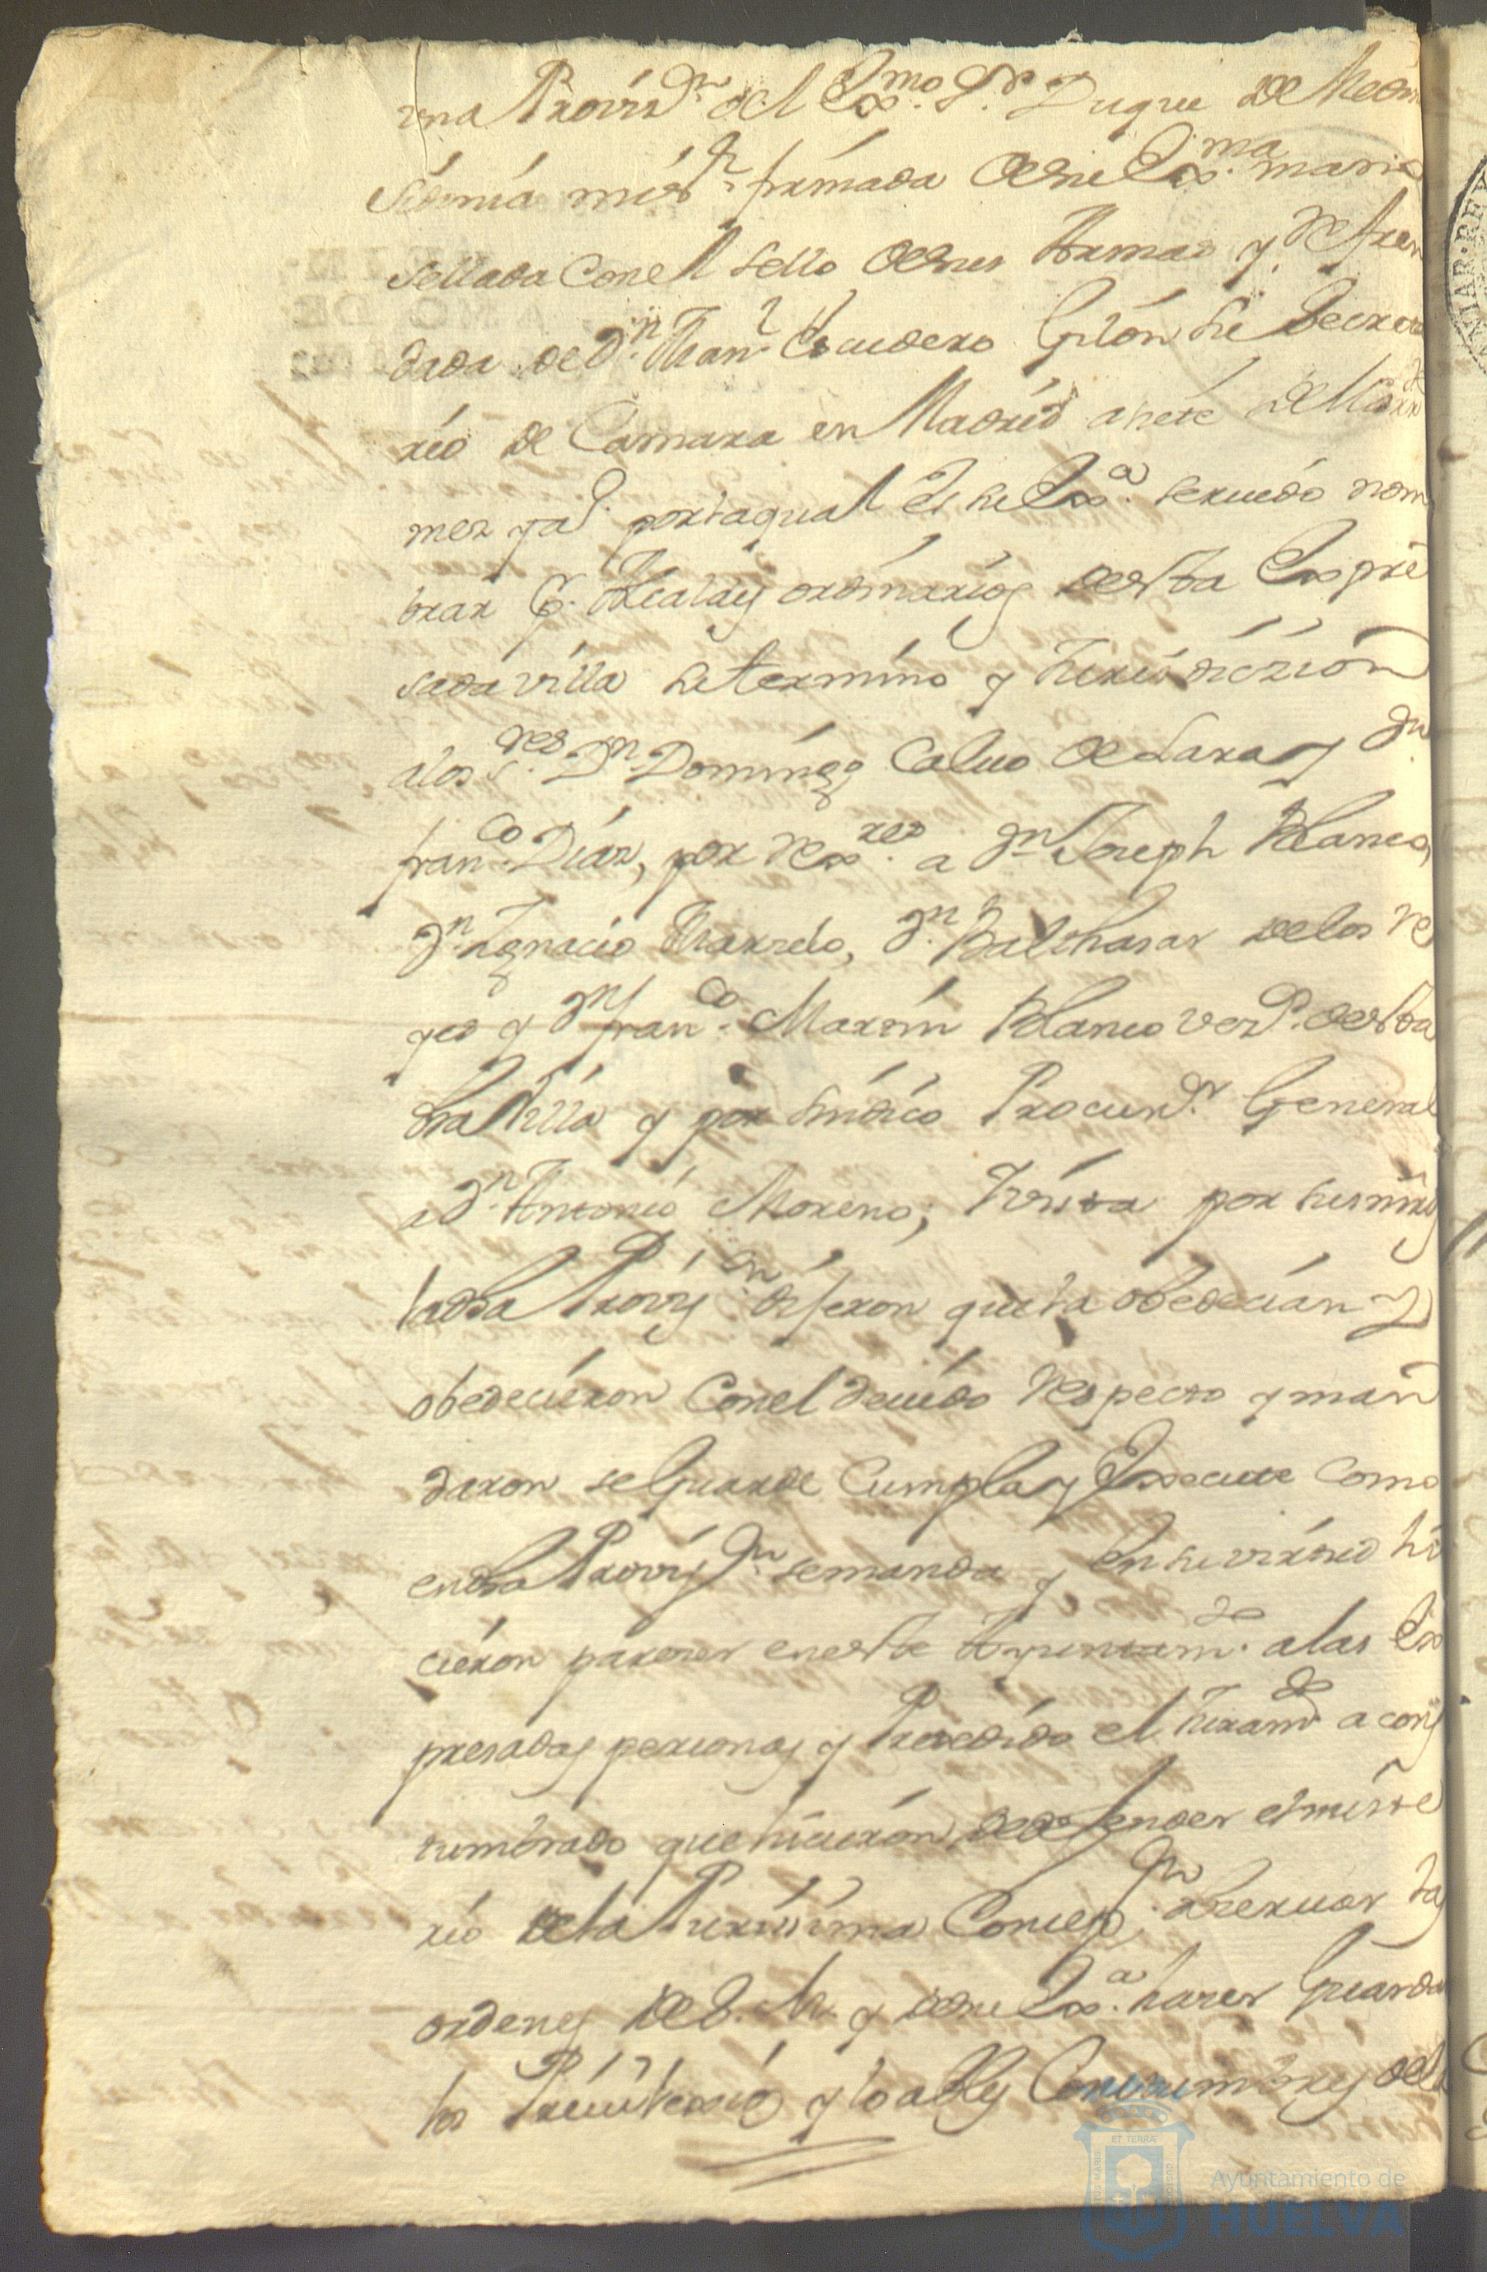 una Provis.on del Exmo. S.or Duque de Medin
Sidonia mi s.r firmada de su Exma. mano
sellada con el sello de sus Armas y Refren
dada de D.n Man.l Escudero Gilón su Secreta
rio de Camara en Madrid a siete de
mes y a.o por la qual es su Ex.a seruido nom
brar p.r Alcaldes ordinarios de esta Expre
sada villa su termino y Jurisdiczion
a los S.res D.n Domingo Caluo de Lara y D.n
fran.co Diaz, por Rex.res a D.n Joseph Blanco,
D.n Ignacio Garrido, D.n Balthasar de los Re
yes y D.n fran.co Martin Blanco vez.s de esta
dha Villa y por sindico Procur.or General
a D.n Antonio Moreno; Vista por sus mrds
la dha Provis.on dijeron que la obedecian y
obedecieron con el deuido respecto y man
daron se Guarde Cumpla y Execute como
en dha Provis.on se manda y en su virtud hi
cieron parecer en este Ayuntam.to a las Ex
presadas personas y Precedido el Juram.to acos
tumbrado que hicieron de defender el miste
rio de la Purissima Concep.on obseruar las
ordenes de S. M. y de su Ex.a hazer Guardar
los Priuilexios y loables Costumbres de la
Ayuntamiento de
HUELVA